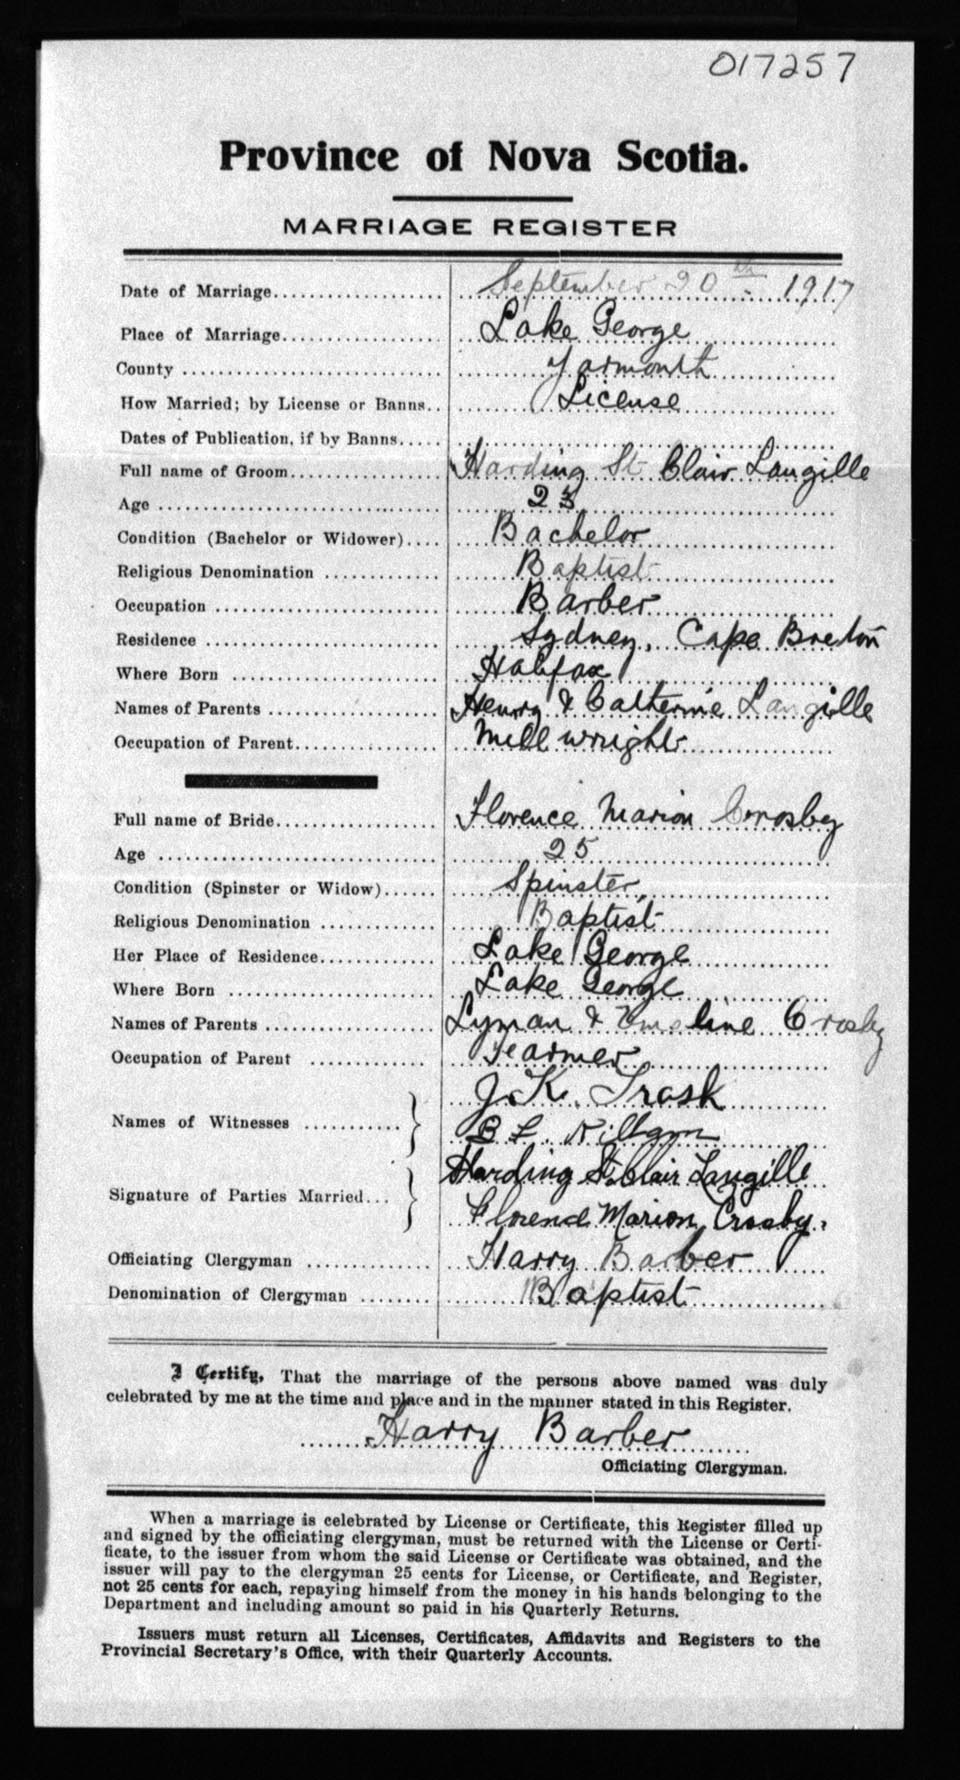 017257
Province of Nova Scotia.
MARRIAGE REGISTER
Date of Marriage.................... September 20th 1917
Place of Marriage................... Lake George
County .............................. Yarmouth
How Married; by License or Banns.. License
Dates of Publication, if by Banns.....
Full name of Groom.................. Harding St Clair Langille
Age .................................. 23
Condition (Bachelor or Widower).... Bachelor
Religious Denomination .............. Baptist
Occupation .......................... Barber
Residence ........................... Sydney, Cape Breton
Where Born ......................... Halifax
Names of Parents .................... Henry & Catherine Langille
Occupation of Parent................. Mill wright
Full name of Bride................... Florence Marion Crosby
Age ................................. 25
Condition (Spinster or Widow)...... Spinster
Religious Denomination .............. Baptist
Her Place of Residence.............. Lake George
Where Born ......................... Lake George
Names of Parents .................... Lyman & Emeline Crosby
Occupation of Parent ............... Farmer
Names of Witnesses ........... } J. K. Trask
B L
Signature of Parties Married... } Harding St. Clair Langille
Florence Marion Crosby.
Officiating Clergyman ............... Harry Barber
Denomination of Clergyman ......... Baptist
I Certify, That the marriage of the persons above named was duly
celebrated by me at the time and place and in the manner stated in this Register.
Harry Barber
Officiating Clergyman.
When a marriage is celebrated by License or Certificate, this Register filled up
and signed by the officiating clergyman, must be returned with the License or Certi-
ficate, to the issuer from whom the said License or Certificate was obtained, and the
issuer will pay to the clergyman 25 cents for License, or Certificate, and Register,
not 25 cents for each, repaying himself from the money in his hands belonging to the
Department and including amount so paid in his Quarterly Returns.
Issuers must return all Licenses, Certificates, Affidavits and Registers to the
Provincial Secretary's Office, with their Quarterly Accounts.